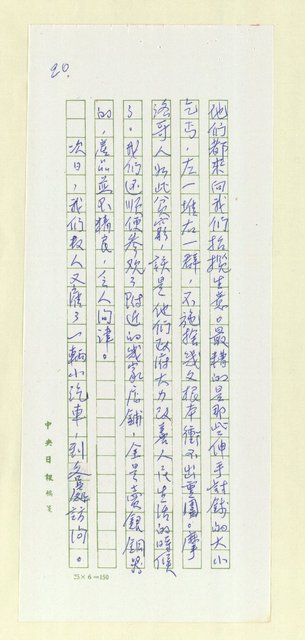 20.
他們都來向我們招攬生意。最糟的是那些伸手討錢的大小
乞丐,左一堆右一群,不施捨幾文根本衝不出重圍。摩
洛哥人如此貧窮,該是他們政府大力改善人民生活的時候
了。我們还順便参观了附近的幾家店舖,全是賣銀銅器
的,產品並不精良,乏人问津。
次日,我們数人又雇了一輛小汽車,到訪问。
中央日報稿箋
25×6=150